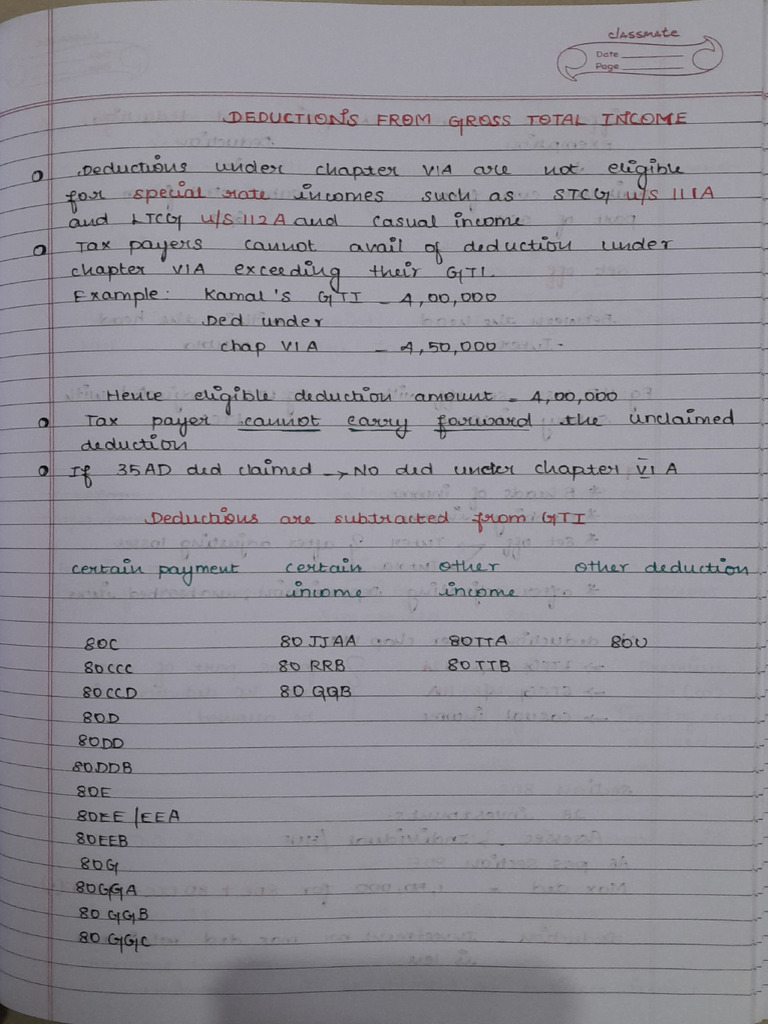 classmate
Date
Page
DEDUCTIONS FROM GROSS TOTAL INCOME
Deductions under chapter VIA are not eligible
for special rate incomes such as STCG u/S 111A
and LTCG u/S 112A and casual income
Tax payers cannot avail of deduction under
chapter VIA exceeding their GTI.
Example: Kamal's GTI - 4,00,000
Ded under
chap VIA - 4,50,000 -
Hence eligible deduction amount = 4,00,000
Tax payer cannot carry forward the unclaimed
deduction
If 35AD ded claimed → No ded under chapter VI A
Deductions are subtracted from GTI
certain payment certain other other deduction
income income
80C 80 JJAA 80TTA 80U
80CCC 80 RRB 80TTB
80CCD 80 QQB
80D
80DD
80DDB
80E
80EE/EEA
80EEB
80G
80GGA
80 GGB
80 GGC